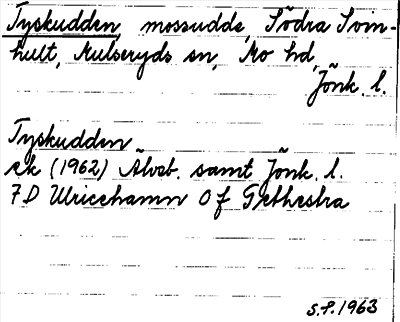 Tyskudden, mossudde, Södra Svin-
hult, Mulseryds sn, Mo hd,
Jönk. l.
Tyskudden
ek (1962) Älvsb. samt Jönk. l.
7D Ulricehamn 0 f Grethestra
S.F. 1963